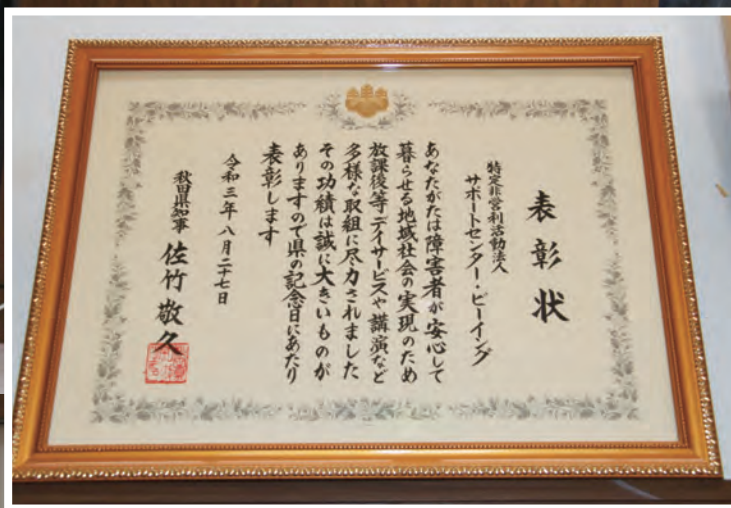 表彰状
特定非営利活動法人
サポートセンター・ビーイング
あなたがたは障害者が安心して
暮らせる地域社会の実現のため
放課後等デイサービスや講演など
多様な取組に尽力されました
その功績は誠に大きいものが
ありますので県の記念日にあたり
表彰します
令和三年八月二十七日
秋田県知事 佐竹敬久